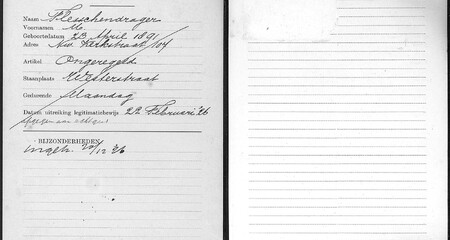 Naam Flesschendrager
Voornamen M.
Geboortedatum 23 April 1891
Adres Nw Kerkstraat 104
Artikel Ongeregeld
Staanplaats Westerstraat
Gedurende Maandag
Datum uitreiking legitimatiebewijs 22 Februari '26
BIJZONDERHEDEN
Ingetr. 20/12 26